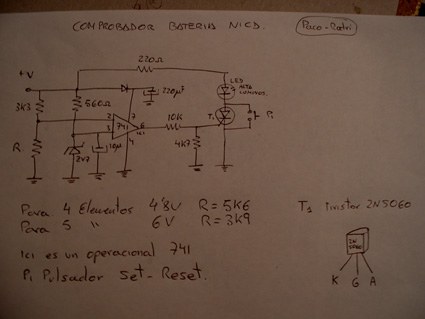 COMPROBADOR BATERIA NICD.
Paco-Rotri
220Ω
+V
LED
ALTA
LUMINOS.
3K3
560Ω
220µF
T1
P1
2
7
741
6
3
4
IC1
10K
R
2V7
10µ
4K7
Para 4 Elementos 4'8V R=5K6
Para 5 " 6V R=3K9
IC1 es un operacional 741
P1 Pulsador Set-Reset.
T1 Tiristor 2N5060
2N
5060
K G A